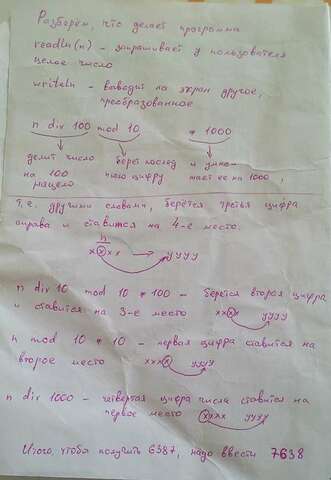 Разберём, что делает программа
readln(n) - запрашивает у пользователя
целое число
writeln - выводит на экран другое,
преобразованное
n div 100 mod 10 * 1000
делит число берёт послед и умно-
на 100 нюю цифру жает её на 1000,
нацело
т.е. другими словами, берётся третья цифра
справа и ставится на 4-е место.
n
xxxx → yyyy
n div 10 mod 10 * 100 - берётся вторая цифра
и ставится на 3-е место xxxx yyyy
n mod 10 * 10 - первая цифра ставится на
второе место xxxx yyyy
n div 1000 - четвёртая цифра числа ставится на
первое место xxxx yyyy
Итого, чтобы получить 6387, надо ввести 7638